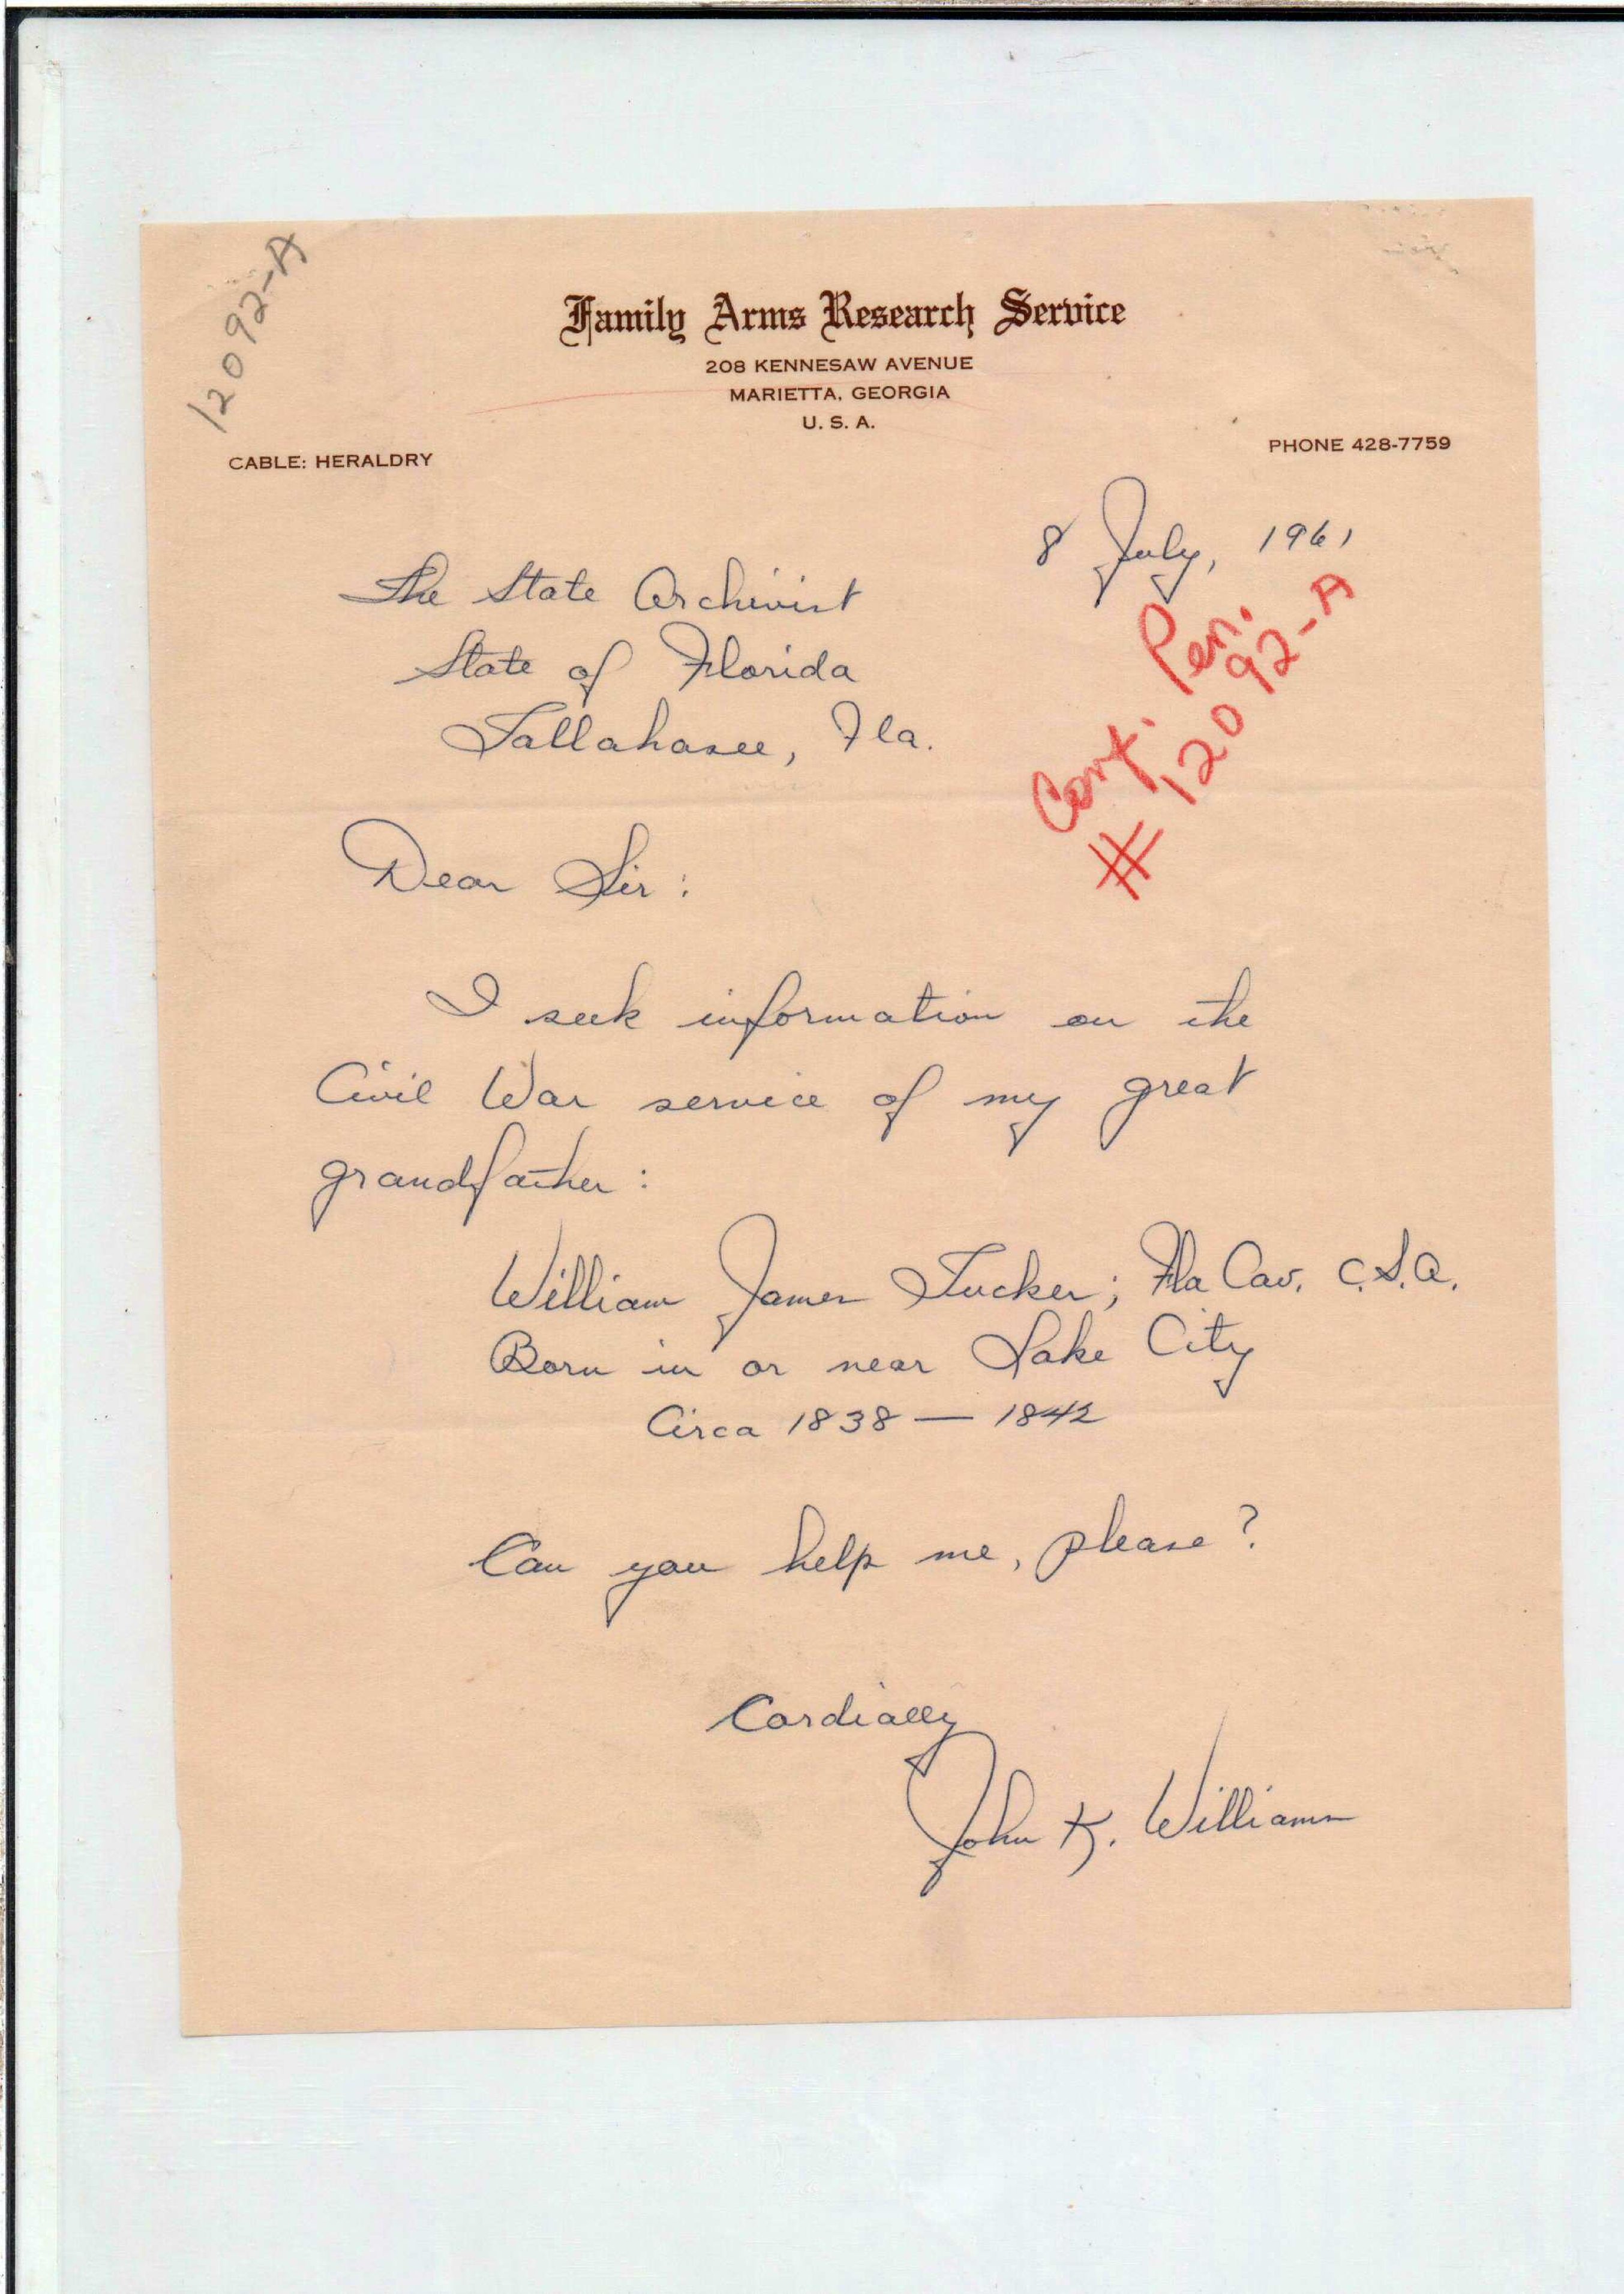 12092-A
Family Arms Research Service
208 KENNESAW AVENUE
MARIETTA, GEORGIA
U. S. A.
CABLE: HERALDRY
PHONE 428-7759
8 July, 1961
The State Archivist
State of Florida
Tallahasee, Fla.
Conf. Pen.
# 12092-A
Dear Sir:
I seek information on the
Civil War service of my great
grandfather:
William James Tucker; Fla Cav. C.S.A.
Born in or near Lake City
Circa 1838 — 1842
Can you help me, please?
Cordially
John K. Williams